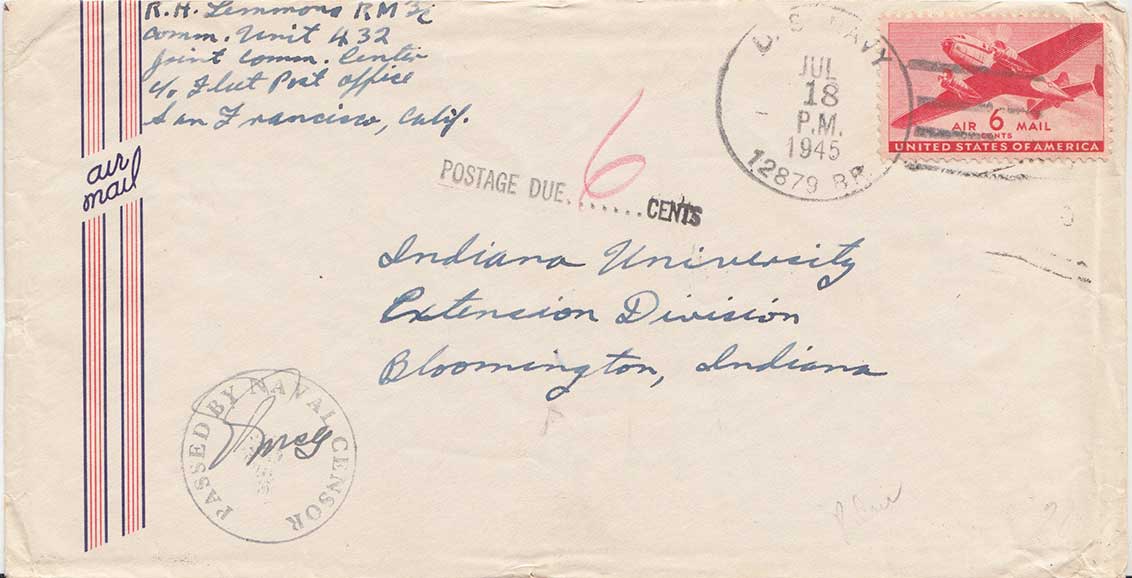 R. H. Lemmons RM 3/c
Comm. Unit 432
Joint Comm. Center
c/o Fleet Post Office
San Francisco, Calif.
air
mail
U. S. NAVY
JUL
18
P.M.
1945
12879 BR.
AIR 6 MAIL
CENTS
UNITED STATES OF AMERICA
POSTAGE DUE.......CENTS
6
Indiana University
Extension Division
Bloomington, Indiana
PASSED BY NAVAL CENSOR